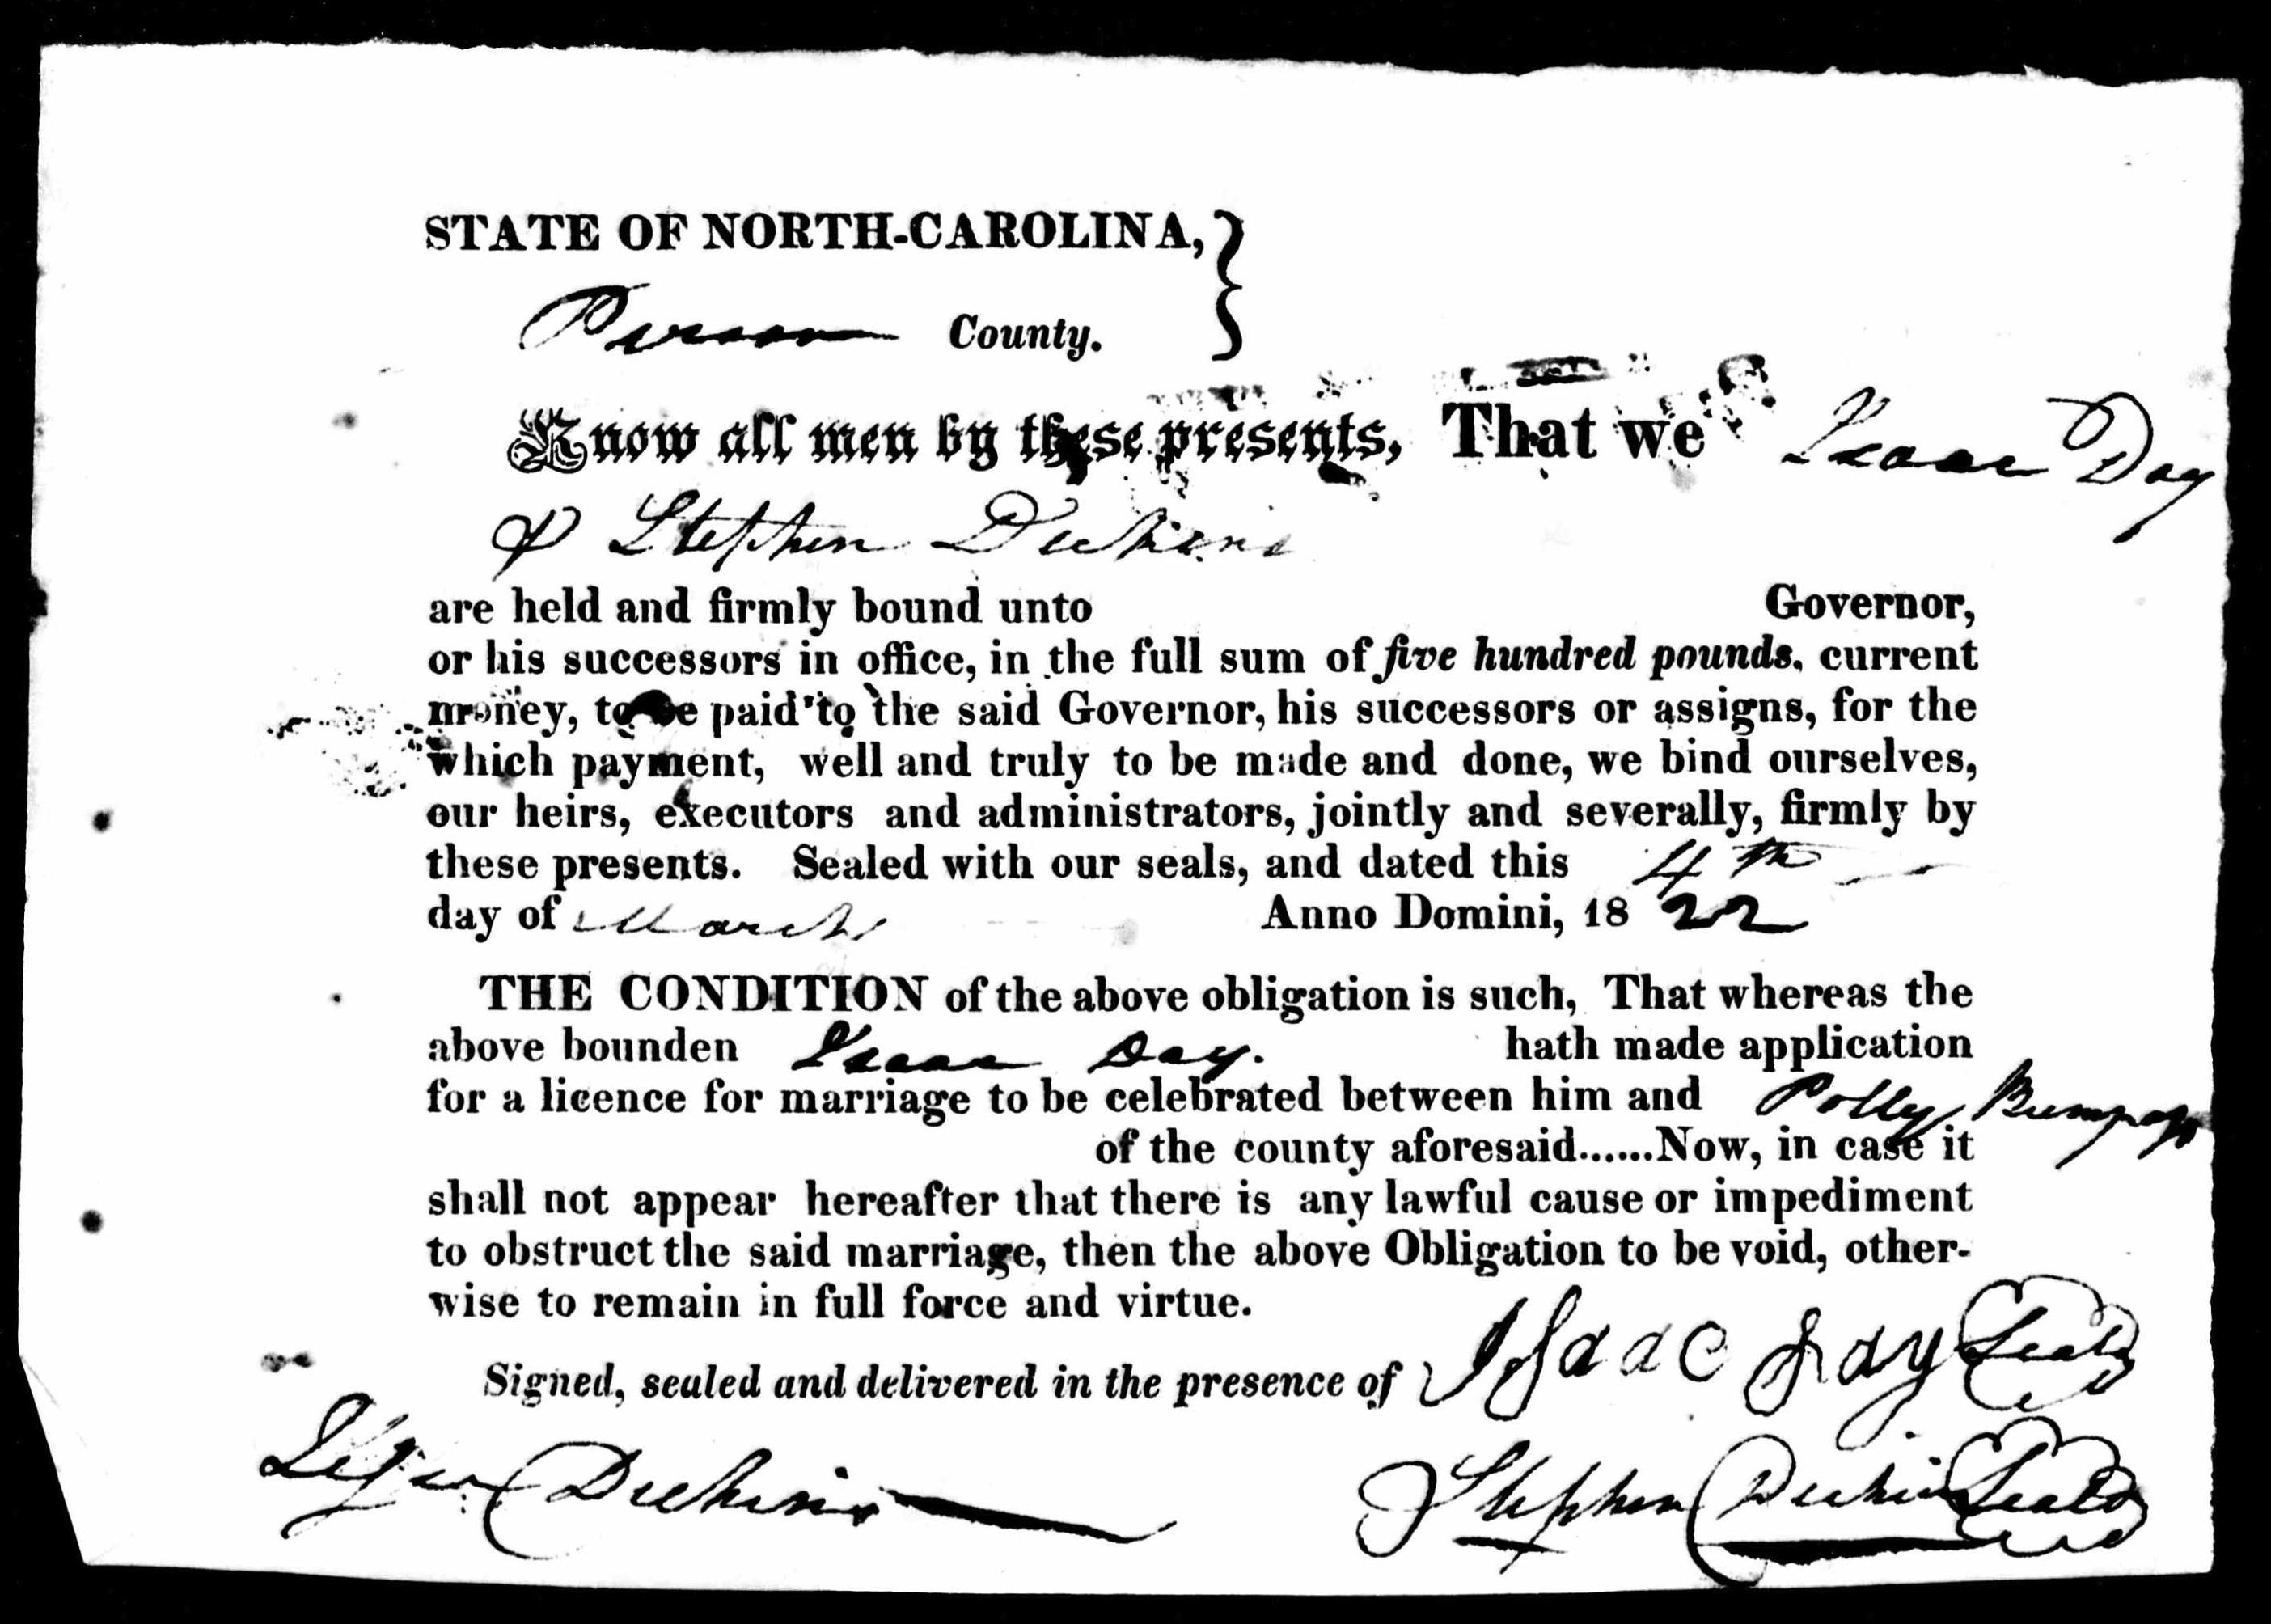 STATE OF NORTH-CAROLINA,
Person County.
Know all men by these presents, That we Isaac Day
& Stephen Dickens
are held and firmly bound unto Governor,
or his successors in office, in the full sum of five hundred pounds, current
money, to be paid to the said Governor, his successors or assigns, for the
which payment, well and truly to be made and done, we bind ourselves,
our heirs, executors and administrators, jointly and severally, firmly by
these presents. Sealed with our seals, and dated this 4th
day of March Anno Domini, 18 22
THE CONDITION of the above obligation is such, That whereas the
above bounden Isaac Day. hath made application
for a licence for marriage to be celebrated between him and Polly Bumpass
of the county aforesaid......Now, in case it
shall not appear hereafter that there is any lawful cause or impediment
to obstruct the said marriage, then the above Obligation to be void, other-
wise to remain in full force and virtue.
Signed, sealed and delivered in the presence of Isaac Day Seal
Dickins Stephen Dickins Seal